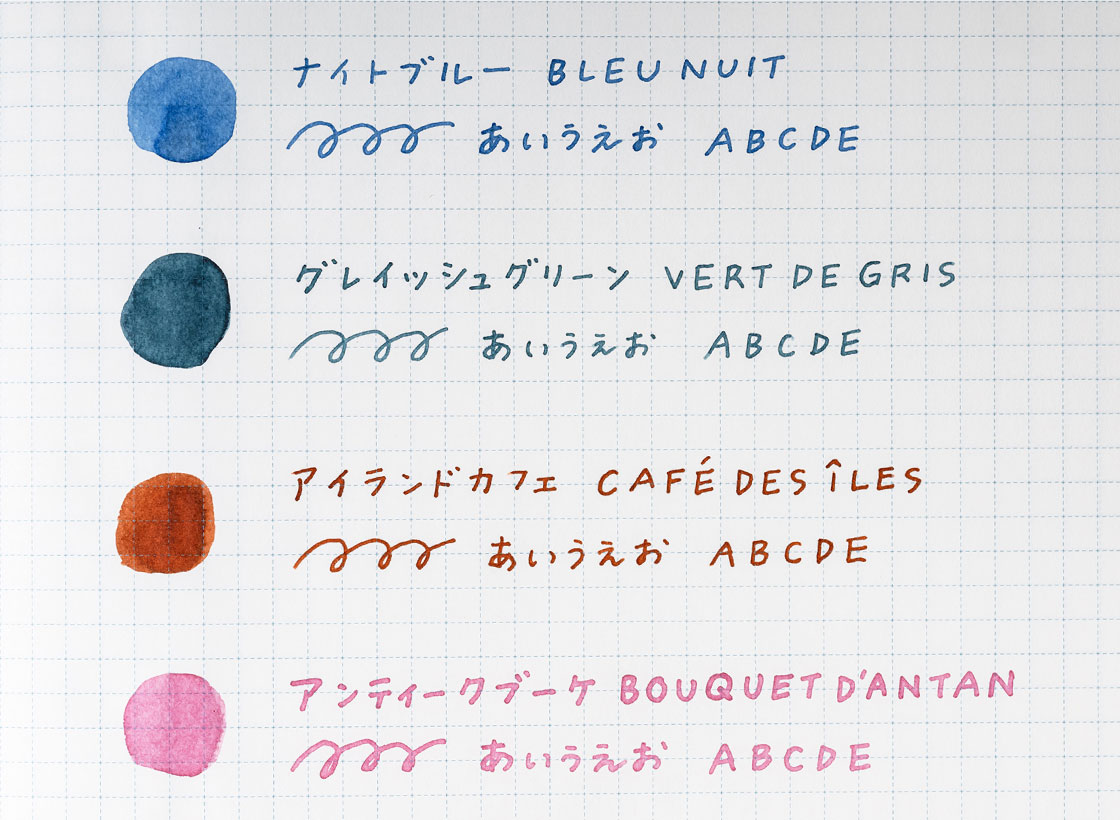 ナイトブルー BLEU NUIT
あいうえお ABCDE
グレイッシュグリーン VERT DE GRIS
あいうえお ABCDE
アイランドカフェ CAFÉ DES ÎLES
あいうえお ABCDE
アンティークブーケ BOUQUET D'ANTAN
あいうえお ABCDE